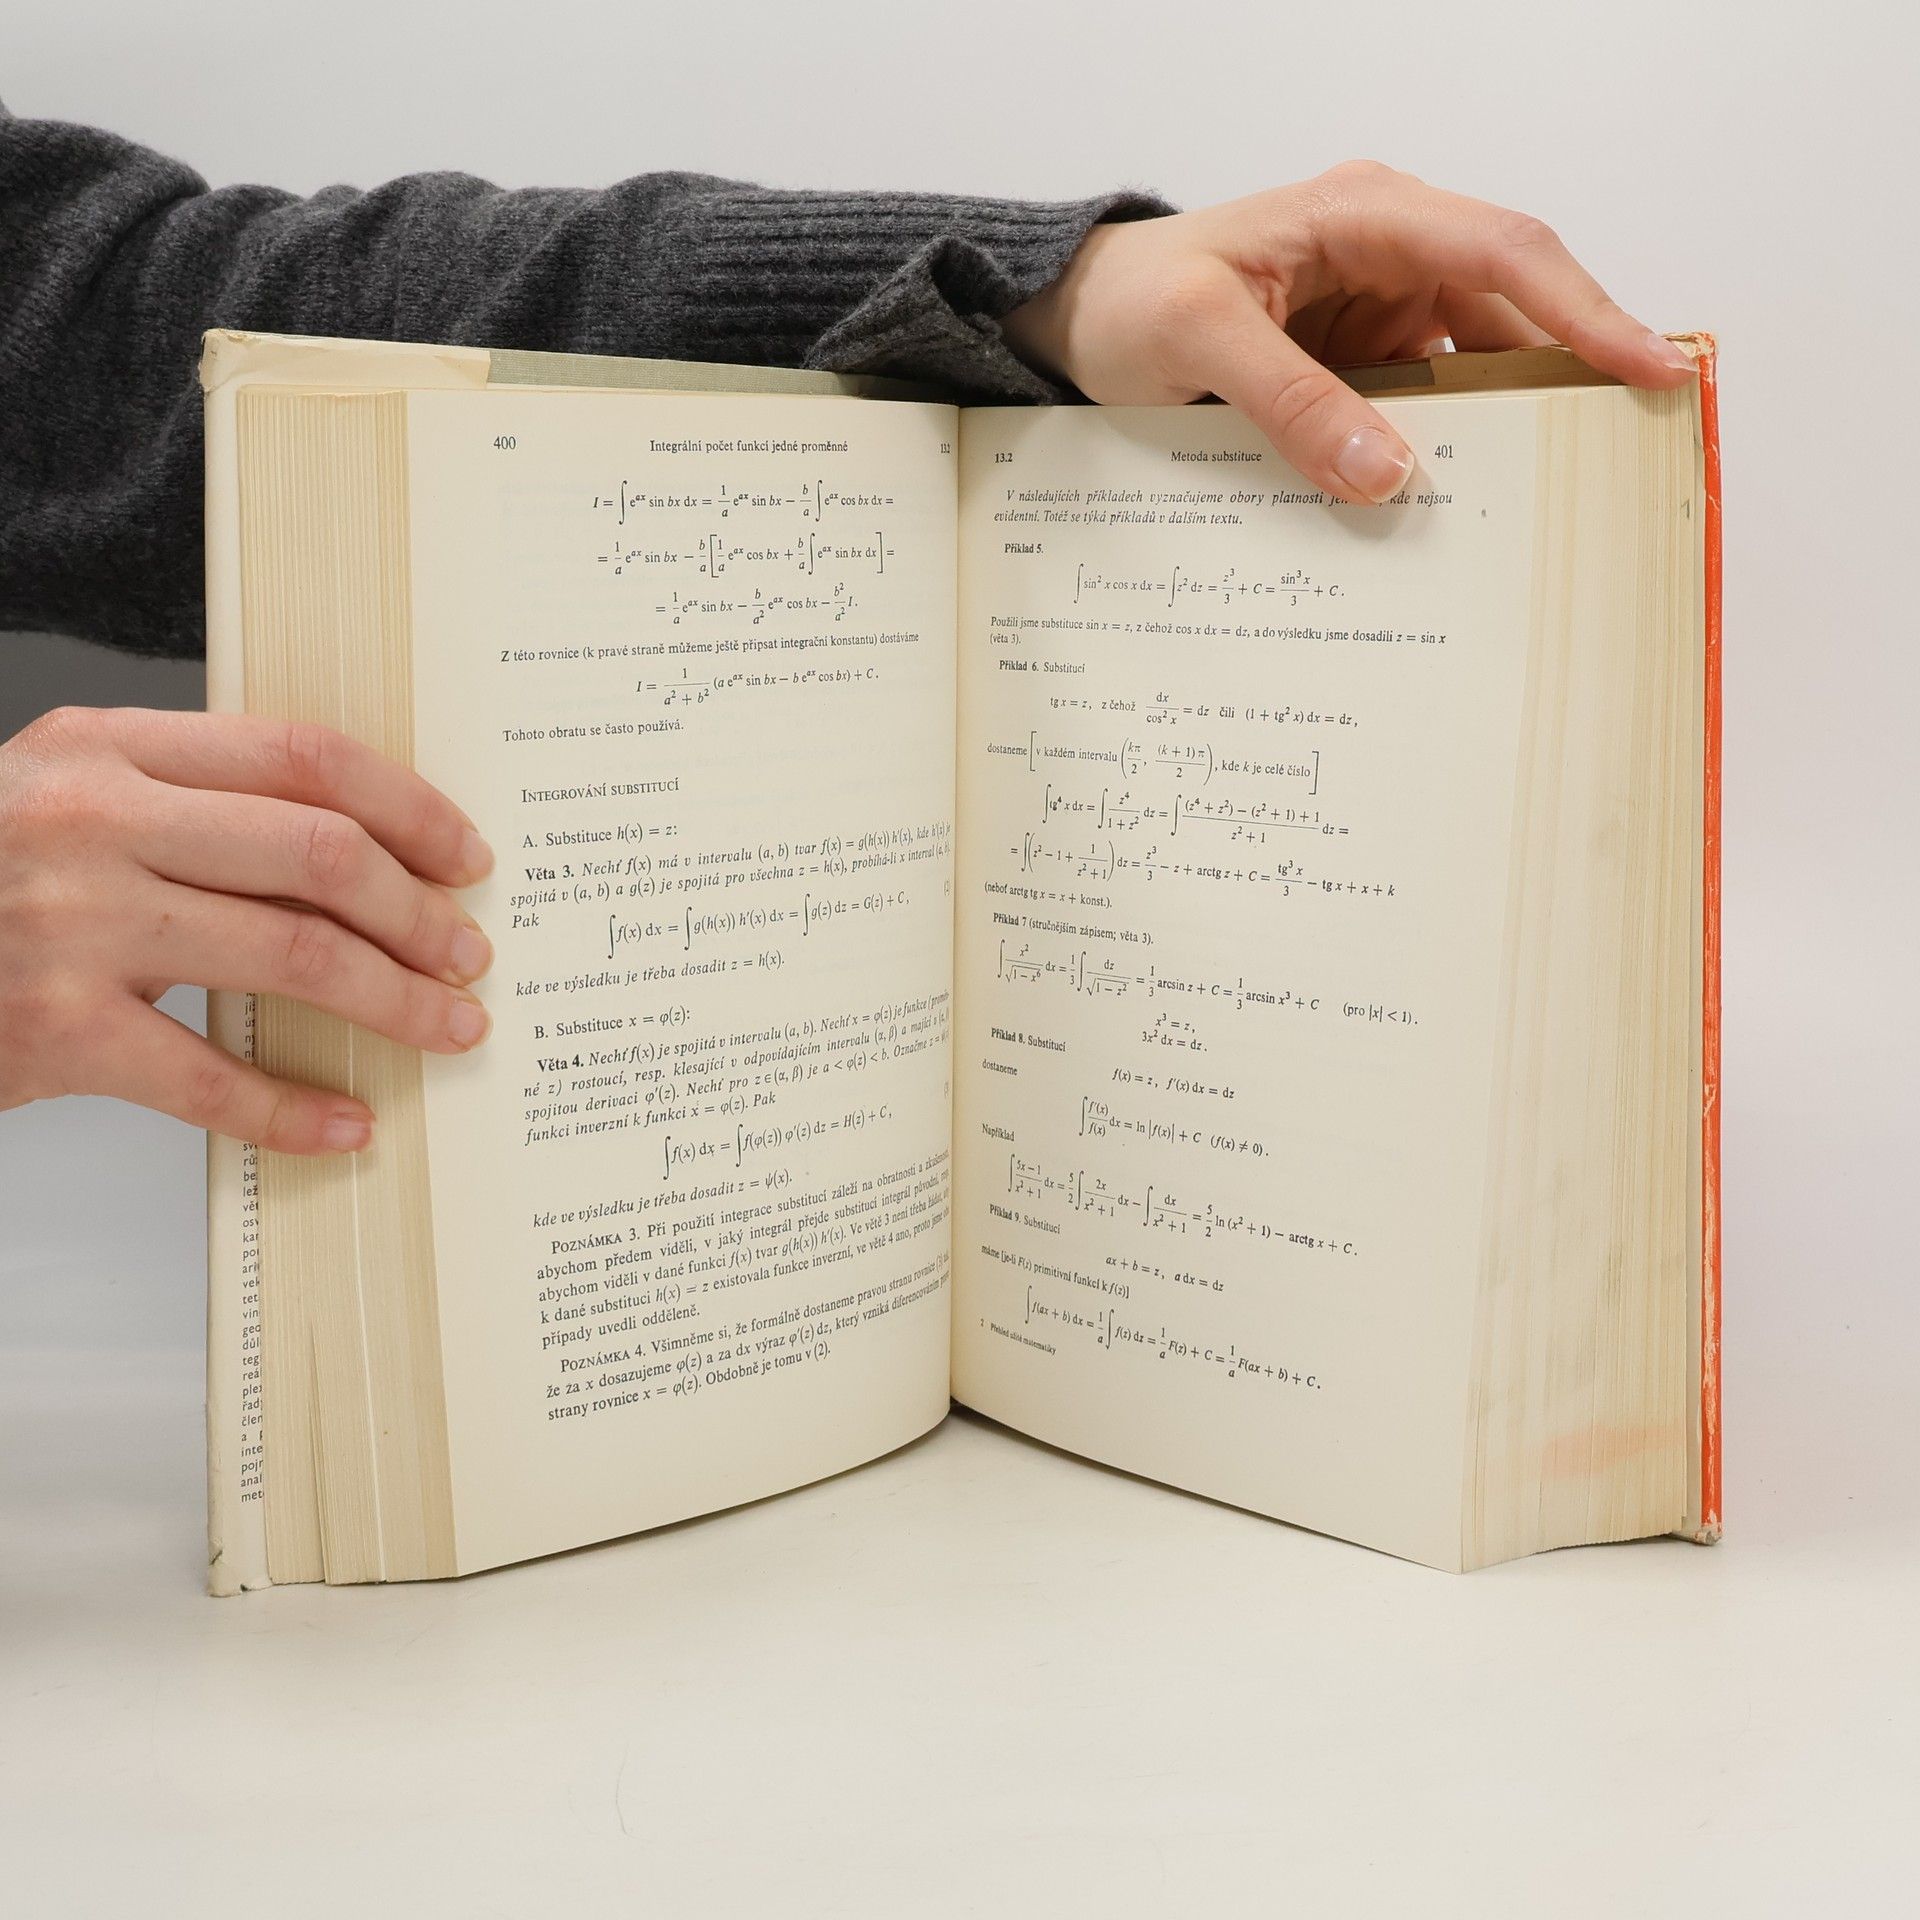 400 Integrální počet funkcí jedné proměnné 13.2
I = ∫ e^{ax} sin bx dx = 1/a e^{ax} sin bx − b/a ∫ e^{ax} cos bx dx =
= 1/a e^{ax} sin bx − b/a [1/a e^{ax} cos bx + b/a ∫ e^{ax} sin bx dx] =
= 1/a e^{ax} sin bx − b/a² e^{ax} cos bx − b²/a² I.
Z této rovnice (k pravé straně můžeme ještě připsat integrační konstantu) dostáváme
I = 1/(a² + b²) (a e^{ax} sin bx − b e^{ax} cos bx) + C.
Tohoto obratu se často používá.
INTEGROVÁNÍ SUBSTITUCÍ
A. Substituce h(x) = z:
Věta 3. Nechť f(x) má v intervalu (a, b) tvar f(x) = g(h(x)) h′(x), kde h′(x) je
spojitá v (a, b) a g(z) je spojitá pro všechna z = h(x), probíhá-li x interval (a, b).
Pak
∫ f(x) dx = ∫ g(h(x)) h′(x) dx = ∫ g(z) dz = G(z) + C, (2)
kde ve výsledku je třeba dosadit z = h(x).
B. Substituce x = φ(z):
Věta 4. Nechť f(x) je spojitá v intervalu (a, b). Nechť x = φ(z) je funkce (proměn-
né z) rostoucí, resp. klesající v odpovídajícím intervalu (α, β) a mající v (α, β)
spojitou derivaci φ′(z). Nechť pro z ∈ (α, β) je a < φ(z) < b. Označme z = ψ(x)
funkci inverzní k funkci x = φ(z). Pak
∫ f(x) dx = ∫ f(φ(z)) φ′(z) dz = H(z) + C, (3)
kde ve výsledku je třeba dosadit z = ψ(x).
POZNÁMKA 3. Při použití integrace substitucí záleží na obratnosti a zkušenosti,
abychom předem viděli, v jaký integrál přejde substitucí integrál původní, resp.
abychom viděli v dané funkci f(x) tvar g(h(x)) h′(x). Ve větě 3 není třeba žádat, aby
k dané substituci h(x) = z existovala funkce inverzní, ve větě 4 ano, proto jsme oba
případy uvedli odděleně.
POZNÁMKA 4. Všimněme si, že formálně dostaneme pravou stranu rovnice (3) tak,
že za x dosazujeme φ(z) a za dx výraz φ′(z) dz, který vzniká diferencováním pravé
strany rovnice x = φ(z). Obdobně je tomu v (2).
13.2 Metoda substituce 401
V následujících příkladech vyznačujeme obory platnosti kde nejsou
evidentní. Totéž se týká příkladů v dalším textu.
Příklad 5.
∫ sin² x cos x dx = ∫ z² dz = z³/3 + C = sin³ x/3 + C.
Použili jsme substituce sin x = z, z čehož cos x dx = dz, a do výsledku jsme dosadili z = sin x
(věta 3).
Příklad 6. Substitucí
tg x = z, z čehož dx/cos² x = dz čili (1 + tg² x) dx = dz,
dostaneme [v každém intervalu (kπ/2, (k + 1) π/2), kde k je celé číslo]
∫ tg⁴ x dx = ∫ z⁴/(1 + z²) dz = ∫ ((z⁴ + z²) − (z² + 1) + 1)/(z² + 1) dz =
= ∫ (z² − 1 + 1/(z² + 1)) dz = z³/3 − z + arctg z + C = tg³ x/3 − tg x + x + k
(neboť arctg tg x = x + konst.).
Příklad 7 (stručnějším zápisem; věta 3).
∫ x²/√(1 − x⁶) dx = 1/3 ∫ dz/√(1 − z²) = 1/3 arcsin z + C = 1/3 arcsin x³ + C (pro |x| < 1).
x³ = z,
3x² dx = dz.
Příklad 8. Substitucí
f(x) = z, f′(x) dx = dz
dostaneme
∫ f′(x)/f(x) dx = ln |f(x)| + C (f(x) ≠ 0).
Například
∫ (5x − 1)/(x² + 1) dx = 5/2 ∫ 2x/(x² + 1) dx − ∫ dx/(x² + 1) = 5/2 ln (x² + 1) − arctg x + C.
Příklad 9. Substitucí
ax + b = z, a dx = dz
máme [je-li F(z) primitivní funkcí k f(z)]
∫ f(ax + b) dx = 1/a ∫ f(z) dz = 1/a F(z) + C = 1/a F(ax + b) + C.
2 Přehled užité matematiky